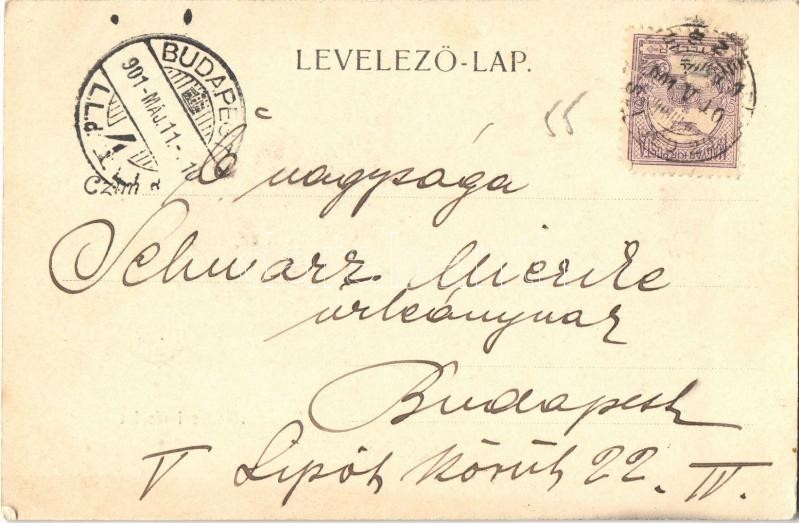 LEVELEZŐ-LAP.
BUDAPEST
901-MÁJ.11
Czím
Ő nagysága
Schwarz Micike
urleánynak
Budapest
V Lipót körút 22. IV.